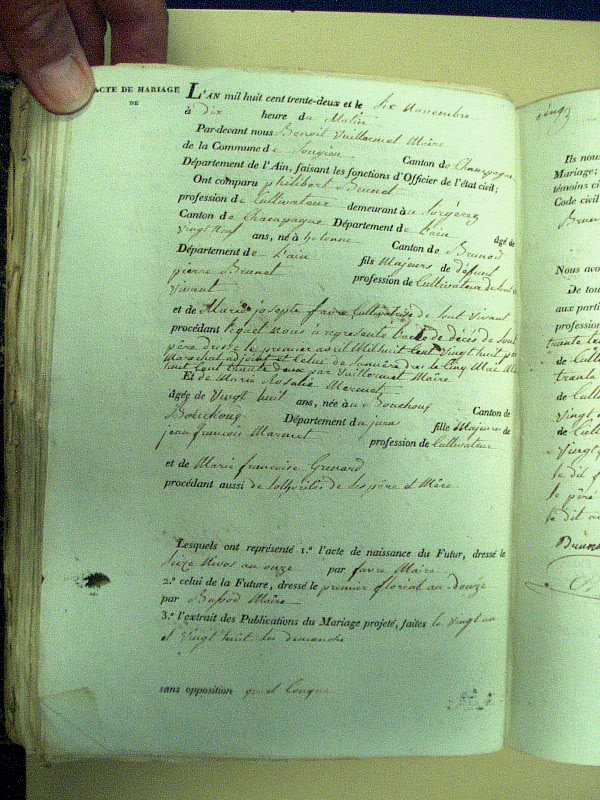 ACTE DE MARIAGE
DE
L'AN mil huit cent trente-deux et le six novembre
à dix heure du Matin
Par-devant nous Benoit Vuillermet Maire
de la Commune de Songieu Canton de Champagne
Département de l'Ain, faisant les fonctions d'Officier de l'état civil;
Ont comparu philibert Brunet
profession de Cultivateur demeurant à
Canton de Champagne Département de L'ain âgé de
vingt neuf ans, né à hotonne Canton de Brenod
Département de L'ain fils Majeurs de défunt
pierre Brunet profession de Cultivateur de Sont
vivant
et de Marie josepte favre Cultivatrice de Sont vivant
procédant lequel nous à représenté l'acte de décés de Sont
père dressé le premier avril Mil huit Cent vingt huit par
Marechal adjoint et Celui de Samère dressé le Cinq Mai Mil
huit Cent trente deux par Vuillermet Maire
Et de Marie Rosalie Mermet
âgée de Vingt huit ans, née à u Bouchoux Canton de
Bouchoux Département du jura fille Majeure de
jean françois Marmet profession de Cultivateur
et de Marie françoise Grenard
procédant aussi de lothorités de Ses père et Mère
Lesquels ont représenté 1.º l'acte de naissance du Futur, dressé le
Seize Nivos an onze par favre Maire
2.º celui de la Future, dressé le premier floréal an douze
par Maire
3.º l'extrait des Publications du Mariage projeté, faites le vingt un
et vingt huit les dimanche
sans opposition quel Conque
cinq
Ils nous
Mariage;
témoins
Code civil
Nous avo
De tou
aux partie
profession
trente
de Culti
trente
de
vingt
de Culti
vingt
le dit
le père
le dit
Brunet